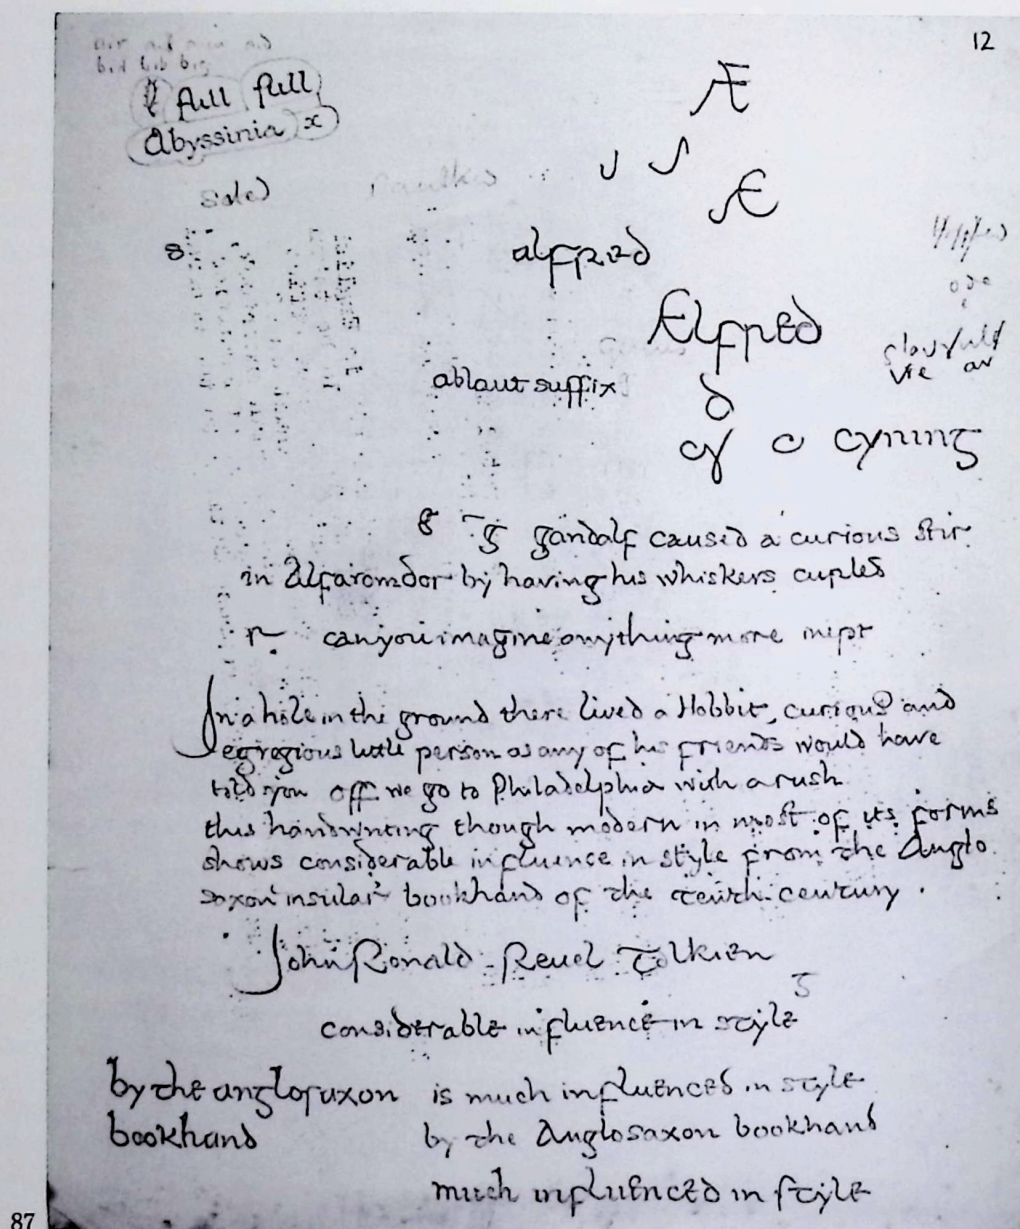 12
full full
Abyssinia x
Æ
Æ
s
alfred
Ælfred
ablaut suffix
d
cy c cyning
g g gandalf caused a curious stir
in Alfaromdor by having his whiskers cupled
r canyou imagine anything more inept
In a hole in the ground there lived a Hobbit, curious and
egregious little person as any of his friends would have
told you off we go to Philadelphia with a rush
this handwriting though modern in most of its forms
shows considerable influence in style from the Anglo
saxon insular bookhand of the tenth century.
John Ronald Reuel Tolkien
considerable influence in style
by the anglosaxon is much influenced in style
bookhand by the Anglosaxon bookhand
much influenced in style
87